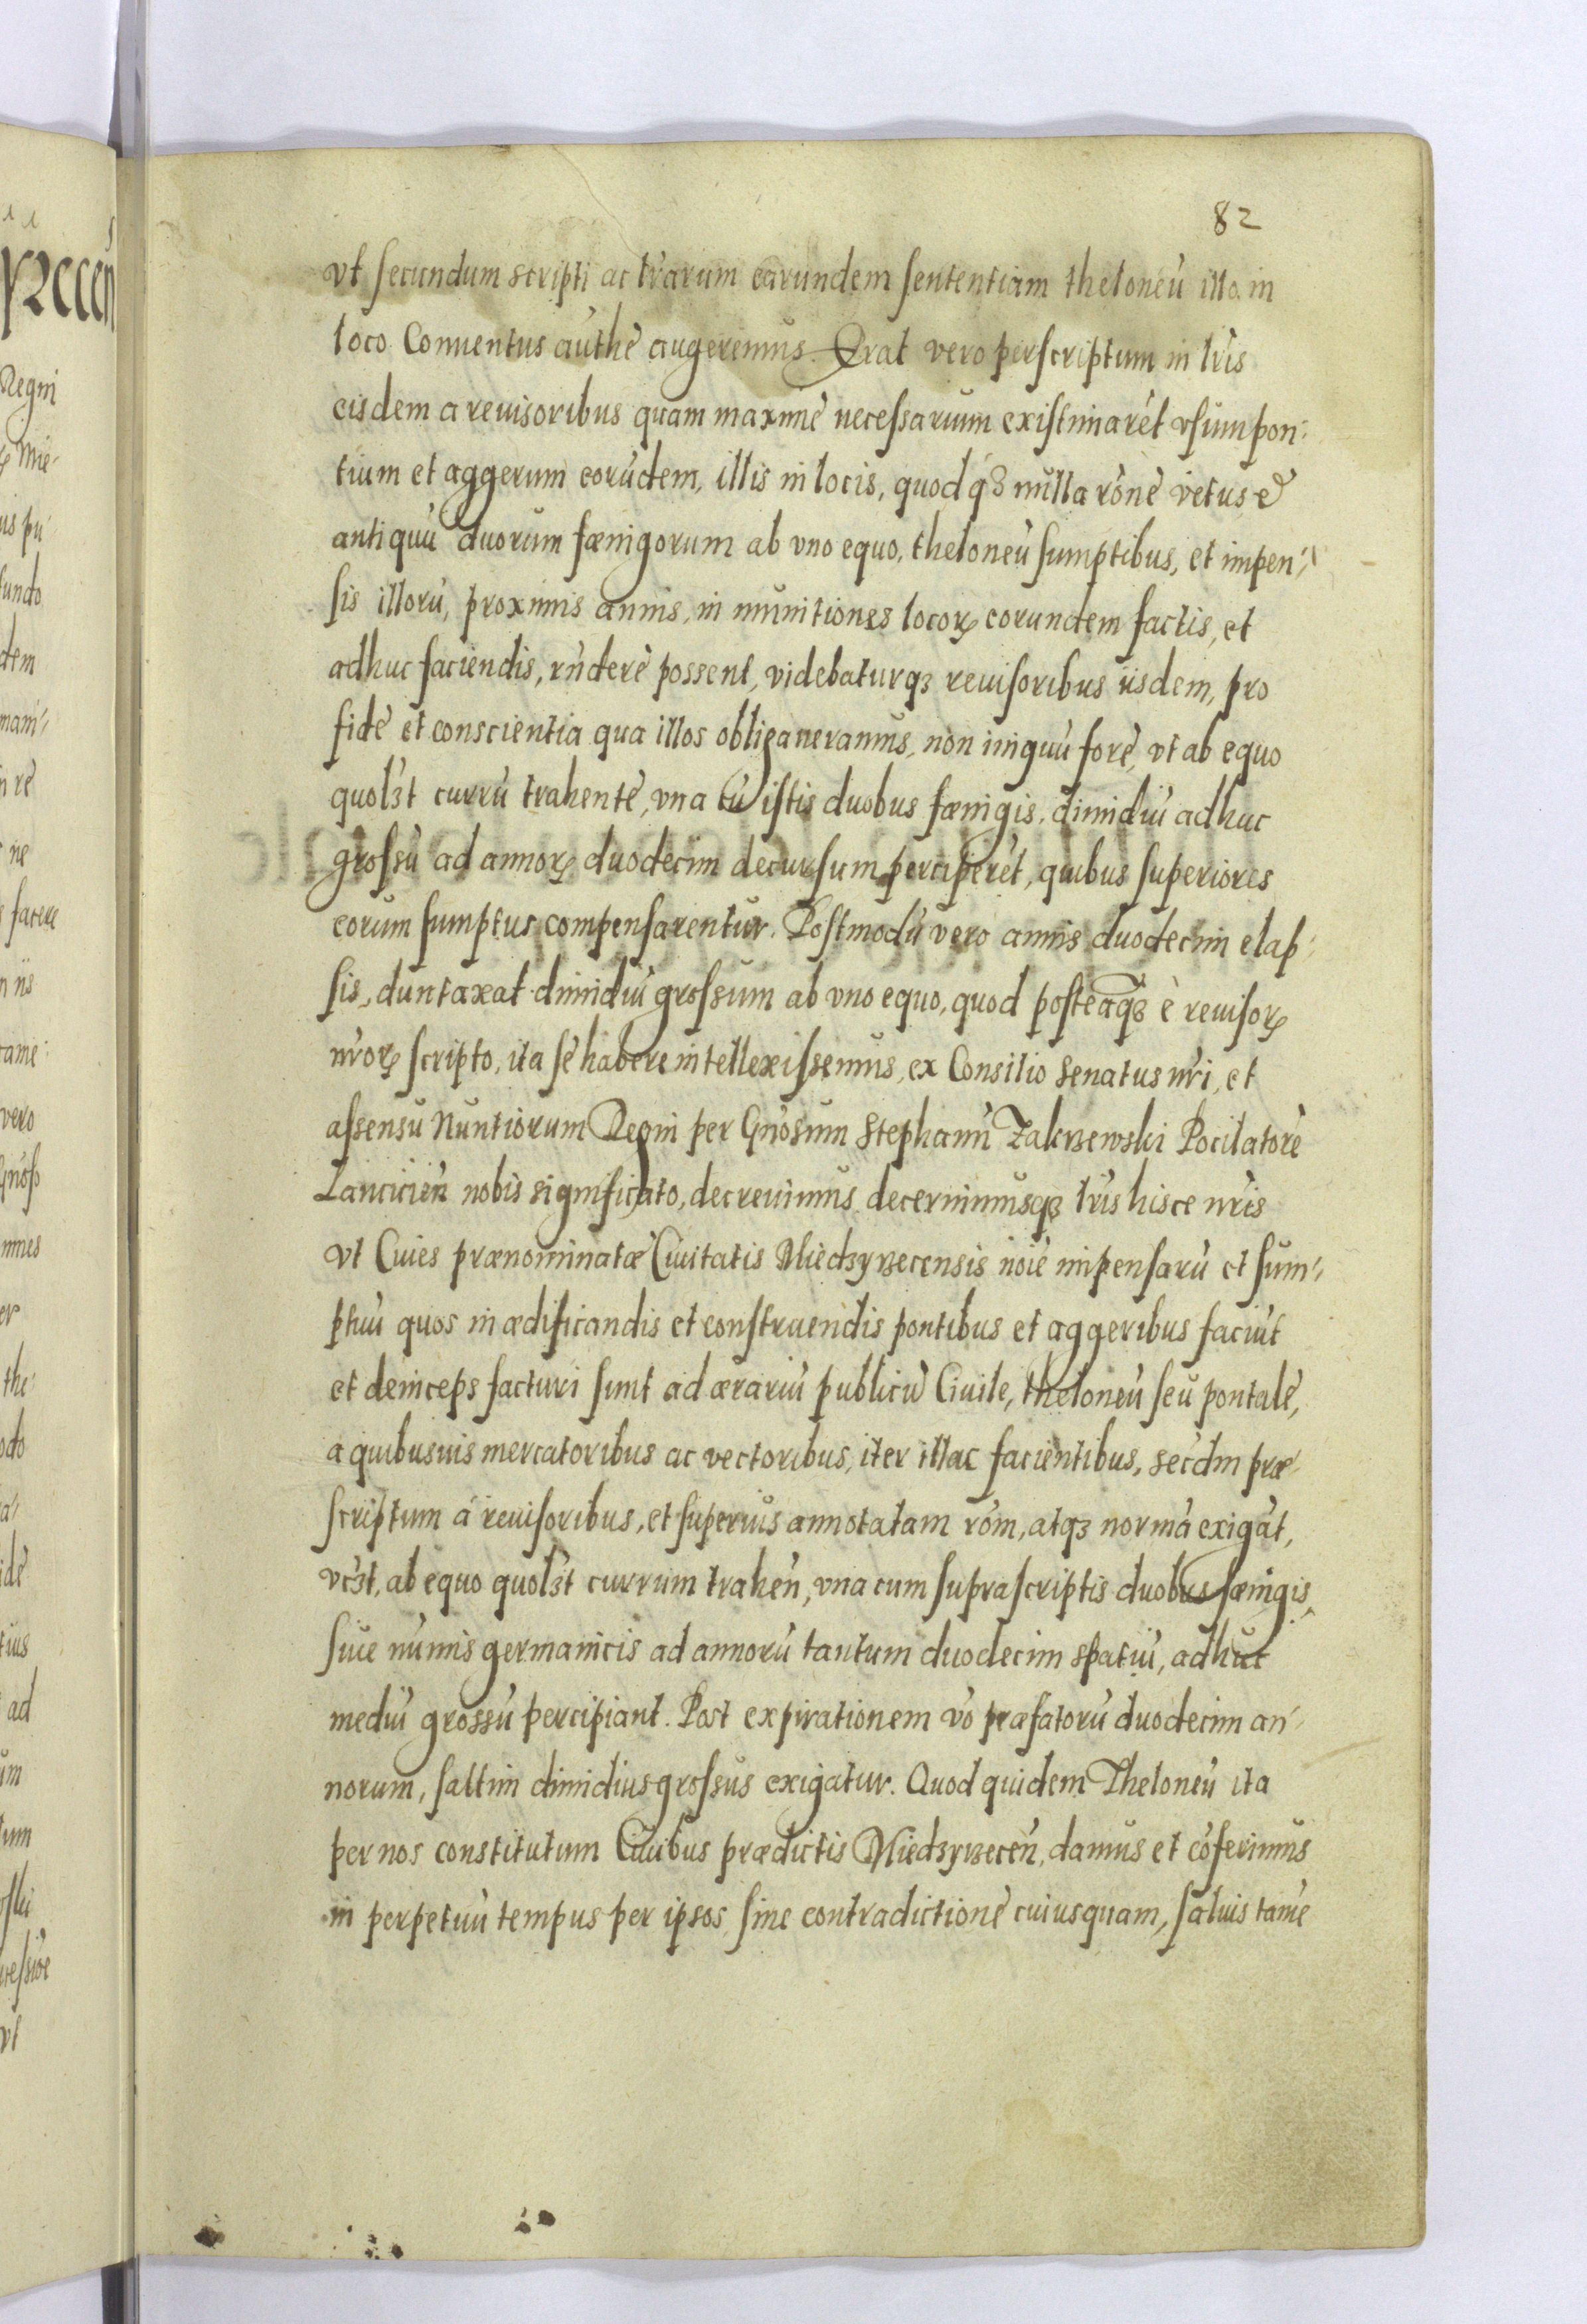 82
vt secundum scripti ac lrarum earundem sententiam theloneũ illo in
loco Conuentus authẽ augeremus. Erat vero perscriptum in lris
eisdem a reuisoribus quam maxime necessarium existimarẽt vsum pon:
tium et aggerum eorũdem, illis in locis, quod qз nulla rõne vetus et
antiquũ duorum fœnigorum ab vno equo, theloneũ sumptibus, et impen:
sis illorũ, proximis annis, in munitiones locorꝝ eorundem factis, et
adhuc faciendis, rñdere possent, videbaturqз reuisoribus iisdem, pro
fide et conscientia qua illos obligaueramus, non iniquũ fore, vt ab equo
quolзt currũ trahente, vna cũ istis duobus fœnigis, dimidiũ adhuc
grossũ ad annorꝝ duodecim decursum perciperẽt, quibus superiores
eorum sumptus compensarentur. Postmodũ vero annis duodecim elap:
sis, duntaxat dimidiũ grossum ab vno equo, quod posteaqз è reuisorꝝ
nrorꝝ scripto, ita se habere intellexissemus, ex Consilio Senatus nri, et
assensu Nuntiorum Regni per Gnosum Stephanũ Zakrzewski Pocilatorẽ
Lancicieñ nobis significato, decreuimus decernimusqз lris hisce nris
Vt Ciues prænominatæ Ciuitatis Miedzyrzecensis noie impensarũ et sum:
ptuũ quos in ædificandis et construendis pontibus et aggeribus faciũt
et deinceps facturi sunt ad ærariũ publicũ Ciuile, theloneũ seu pontale,
a quibusuis mercatoribus ac vectoribus, iter illac facientibus, secdm præ:
scriptum a reuisoribus, et superius annotatam rõm, atqз normã exigãt,
vcзt, ab equo quolзt currum traheñ, vna cum suprascriptis duobus fœnigis,
siue nũmis germanicis ad annorũ tantum duodecim spatiũ, adhuc
mediũ grossũ percipiant. Post expirationem vo præfatorũ duodecim an:
norum, saltim dimidius grossus exigatur. Quod quidem Theloneũ ita
per nos constitutum Ciuibus prædictis Miedzyrzeceñ, damus et cõferimus
in perpetuũ tempus per ipsos sine contradictione cuiusquam, saluis tamẽ